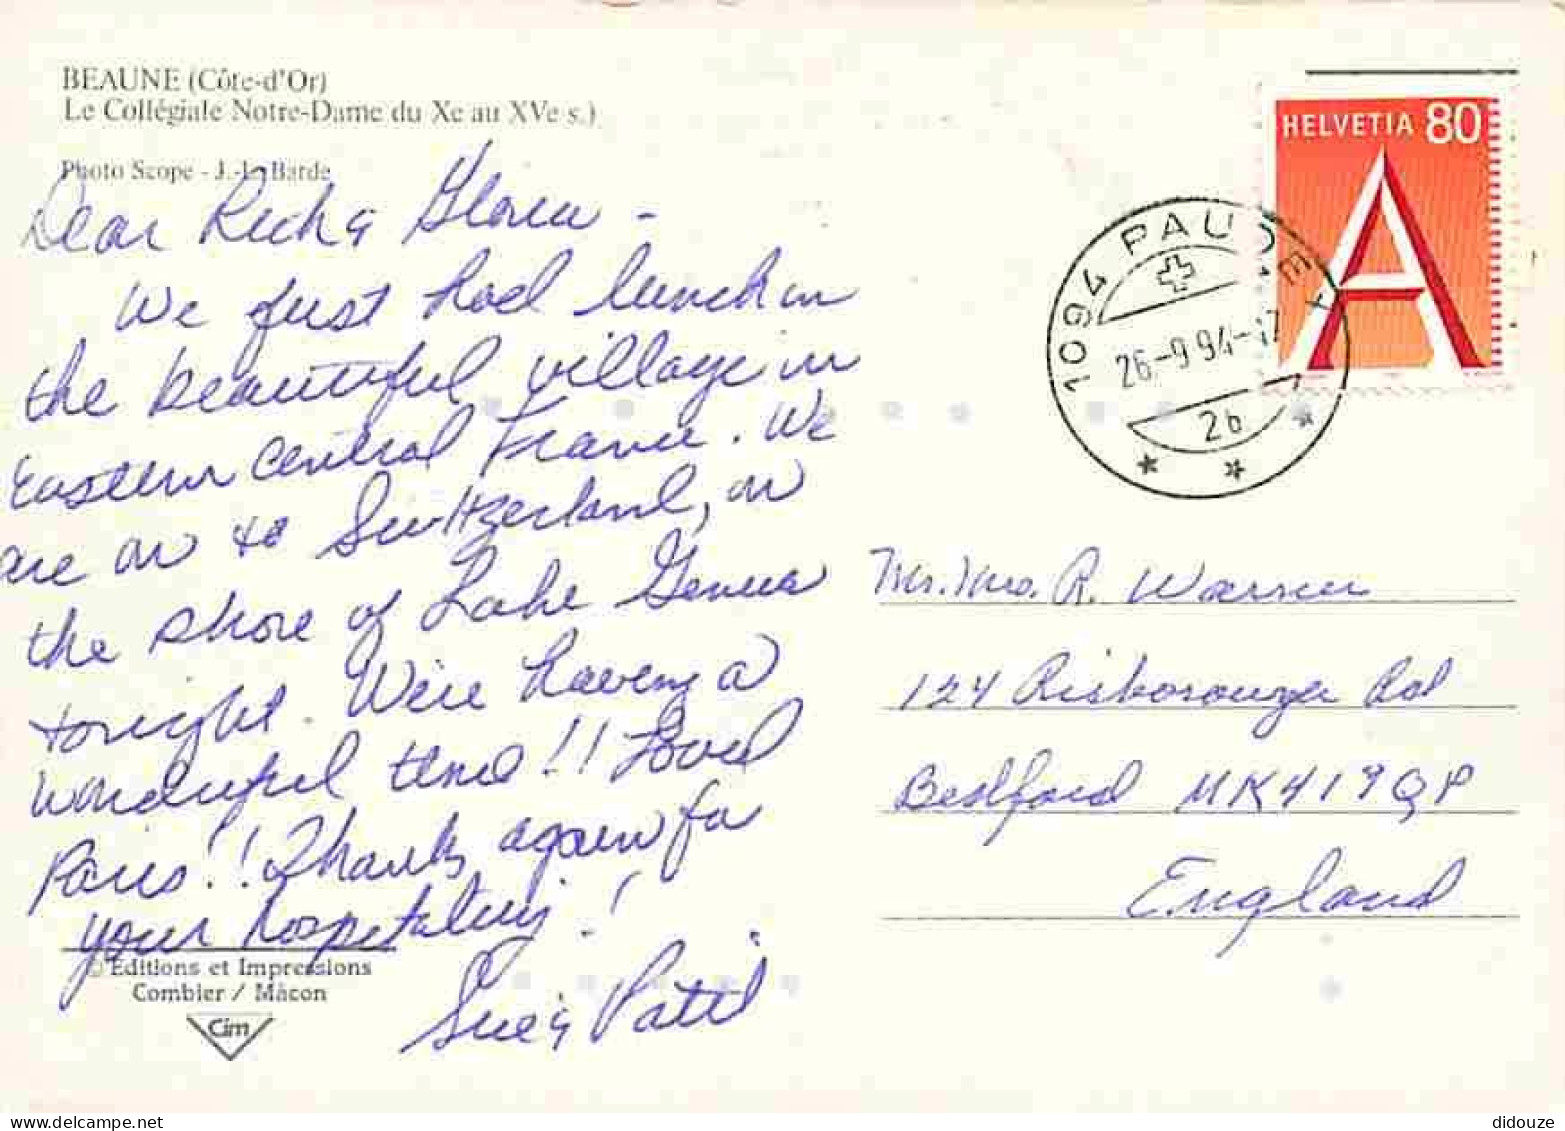 BEAUNE (Côte-d'Or)
Le Collégiale Notre-Dame du Xe au XVe s.)
Photo Scope - J.-L. Barde
Dear Rich & Gloria -
We just had lunch in
the beautiful village in
Eastern Central France. We
are on to Switzerland, on
the shore of Lake Geneva
tonight. We're having a
wonderful time!! Loved
Paris!! Thanks again for
your hospitality!
Sue & Patti
© Editions et Impressions
Combier / Mâcon
Cim
HELVETIA 80
A
1094 PAUDEX
26-9 94-17
2b
Mr. Mrs. R. Warren
124 Risborough Rd
Bedford MK419QP
England
didouze